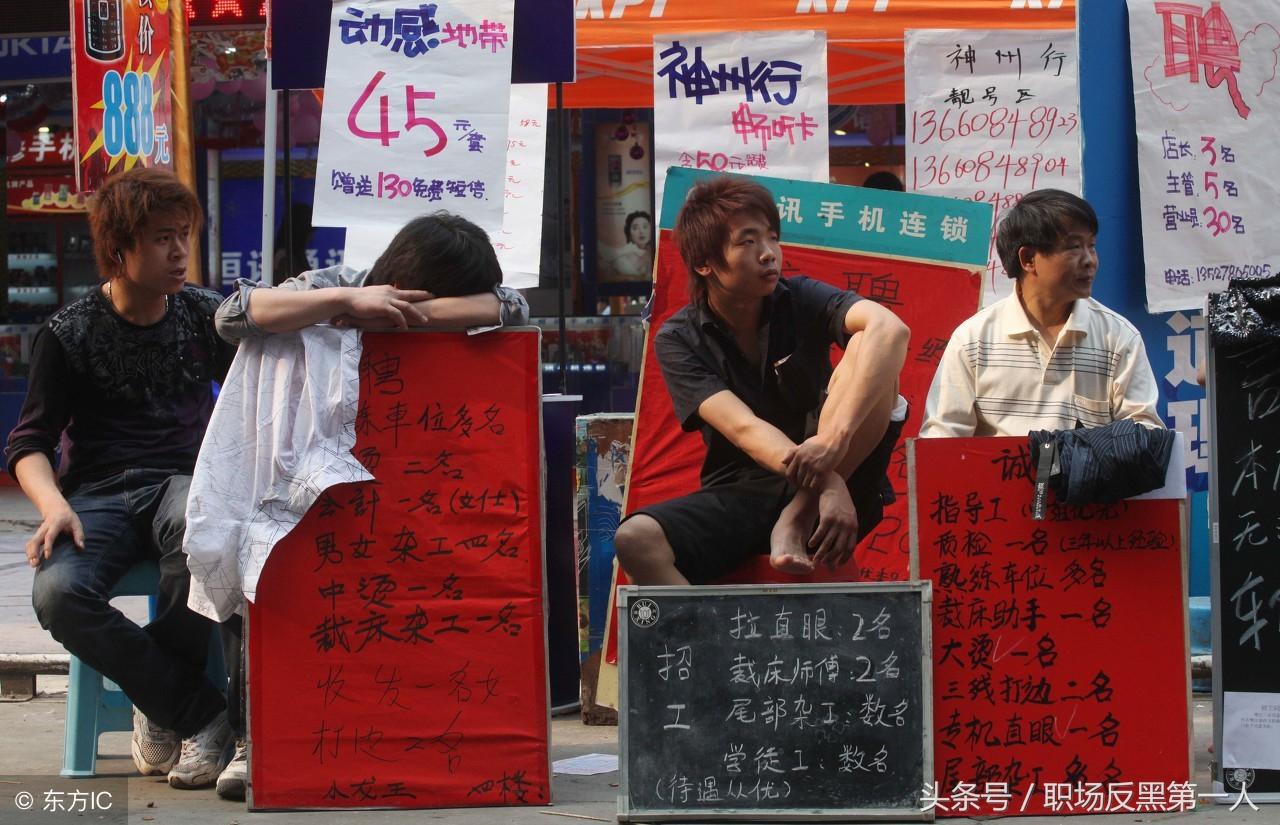 价
888元
手机
动感地带
45元/套
赠送130免费短信
神州行
畅听卡
含50元话费
神州行
靓号区
13660848923
13660848904
聘
店长3名
主管5名
营业员30名
电话:13527865005
讯手机连锁
聘
聘
车位多名
烫二名
会計一名(女仕)
男女杂工四名
中烫一名
裁床杂工一名
收发一名女
打边2名
四楼
招工
拉直眼:2名
裁床师傅:2名
尾部杂工:数名
学徒工:数名
(待遇从优)
诚
指导工
质检一名(三年以上经验)
熟练车位多名
裁床助手一名
大烫一名
三线打边二名
专机直眼一名
尾部杂工多名
本
无
车
© 东方IC
头条号 / 职场反黑第一人